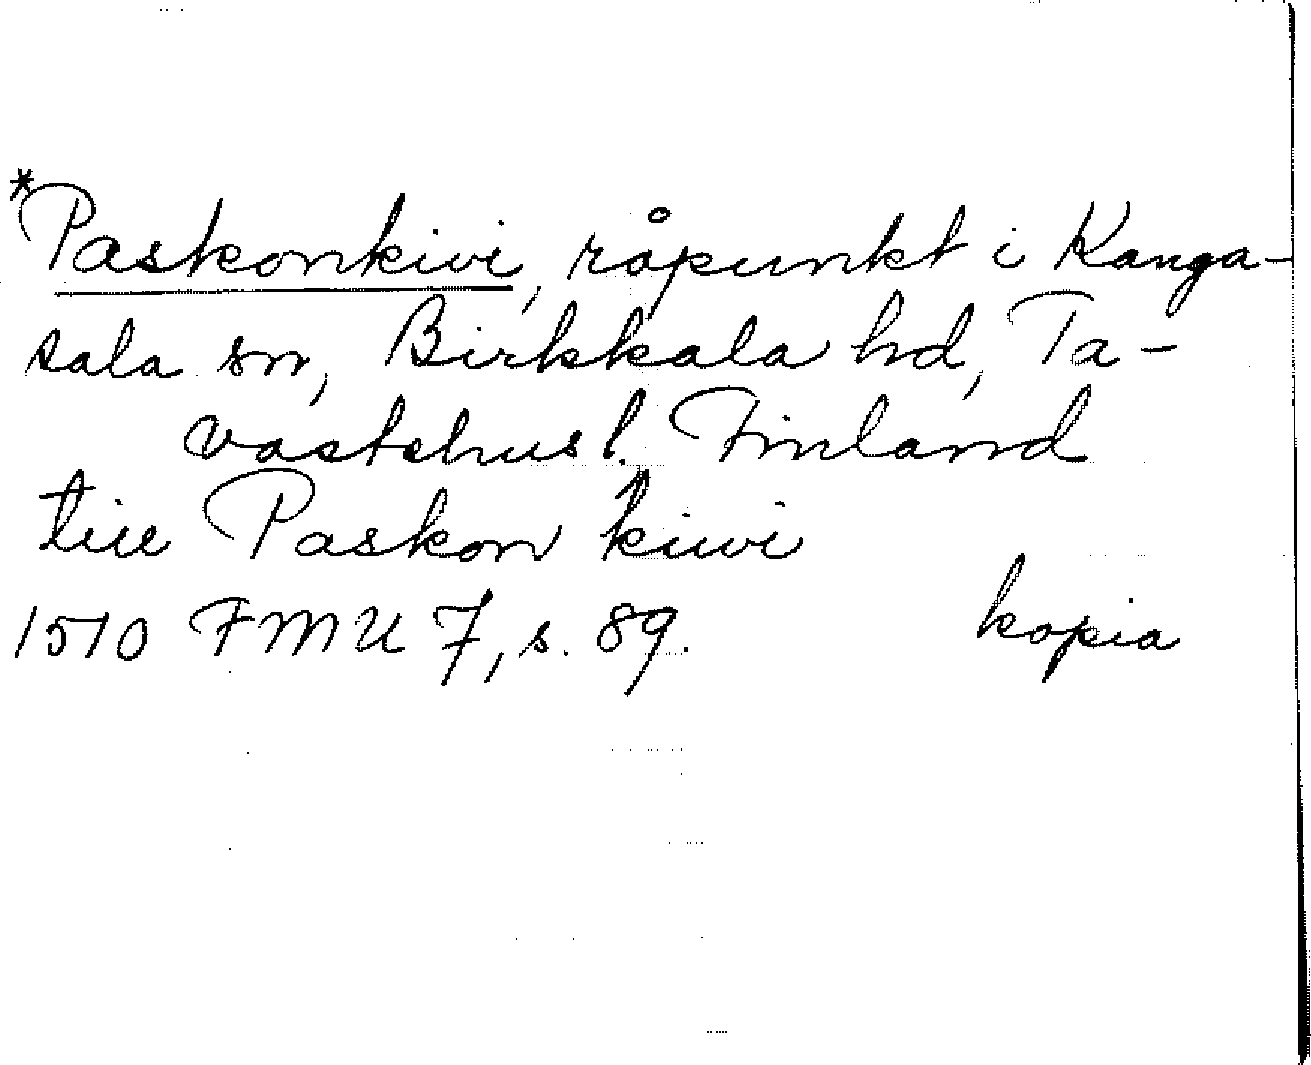 *Paskonkivi, råpunkt i Kanga-
sala sn, Birkkala hd, Ta-
vastehus l. Finland
till Paskon kiwi
1510 FMU 7, s. 89. kopia